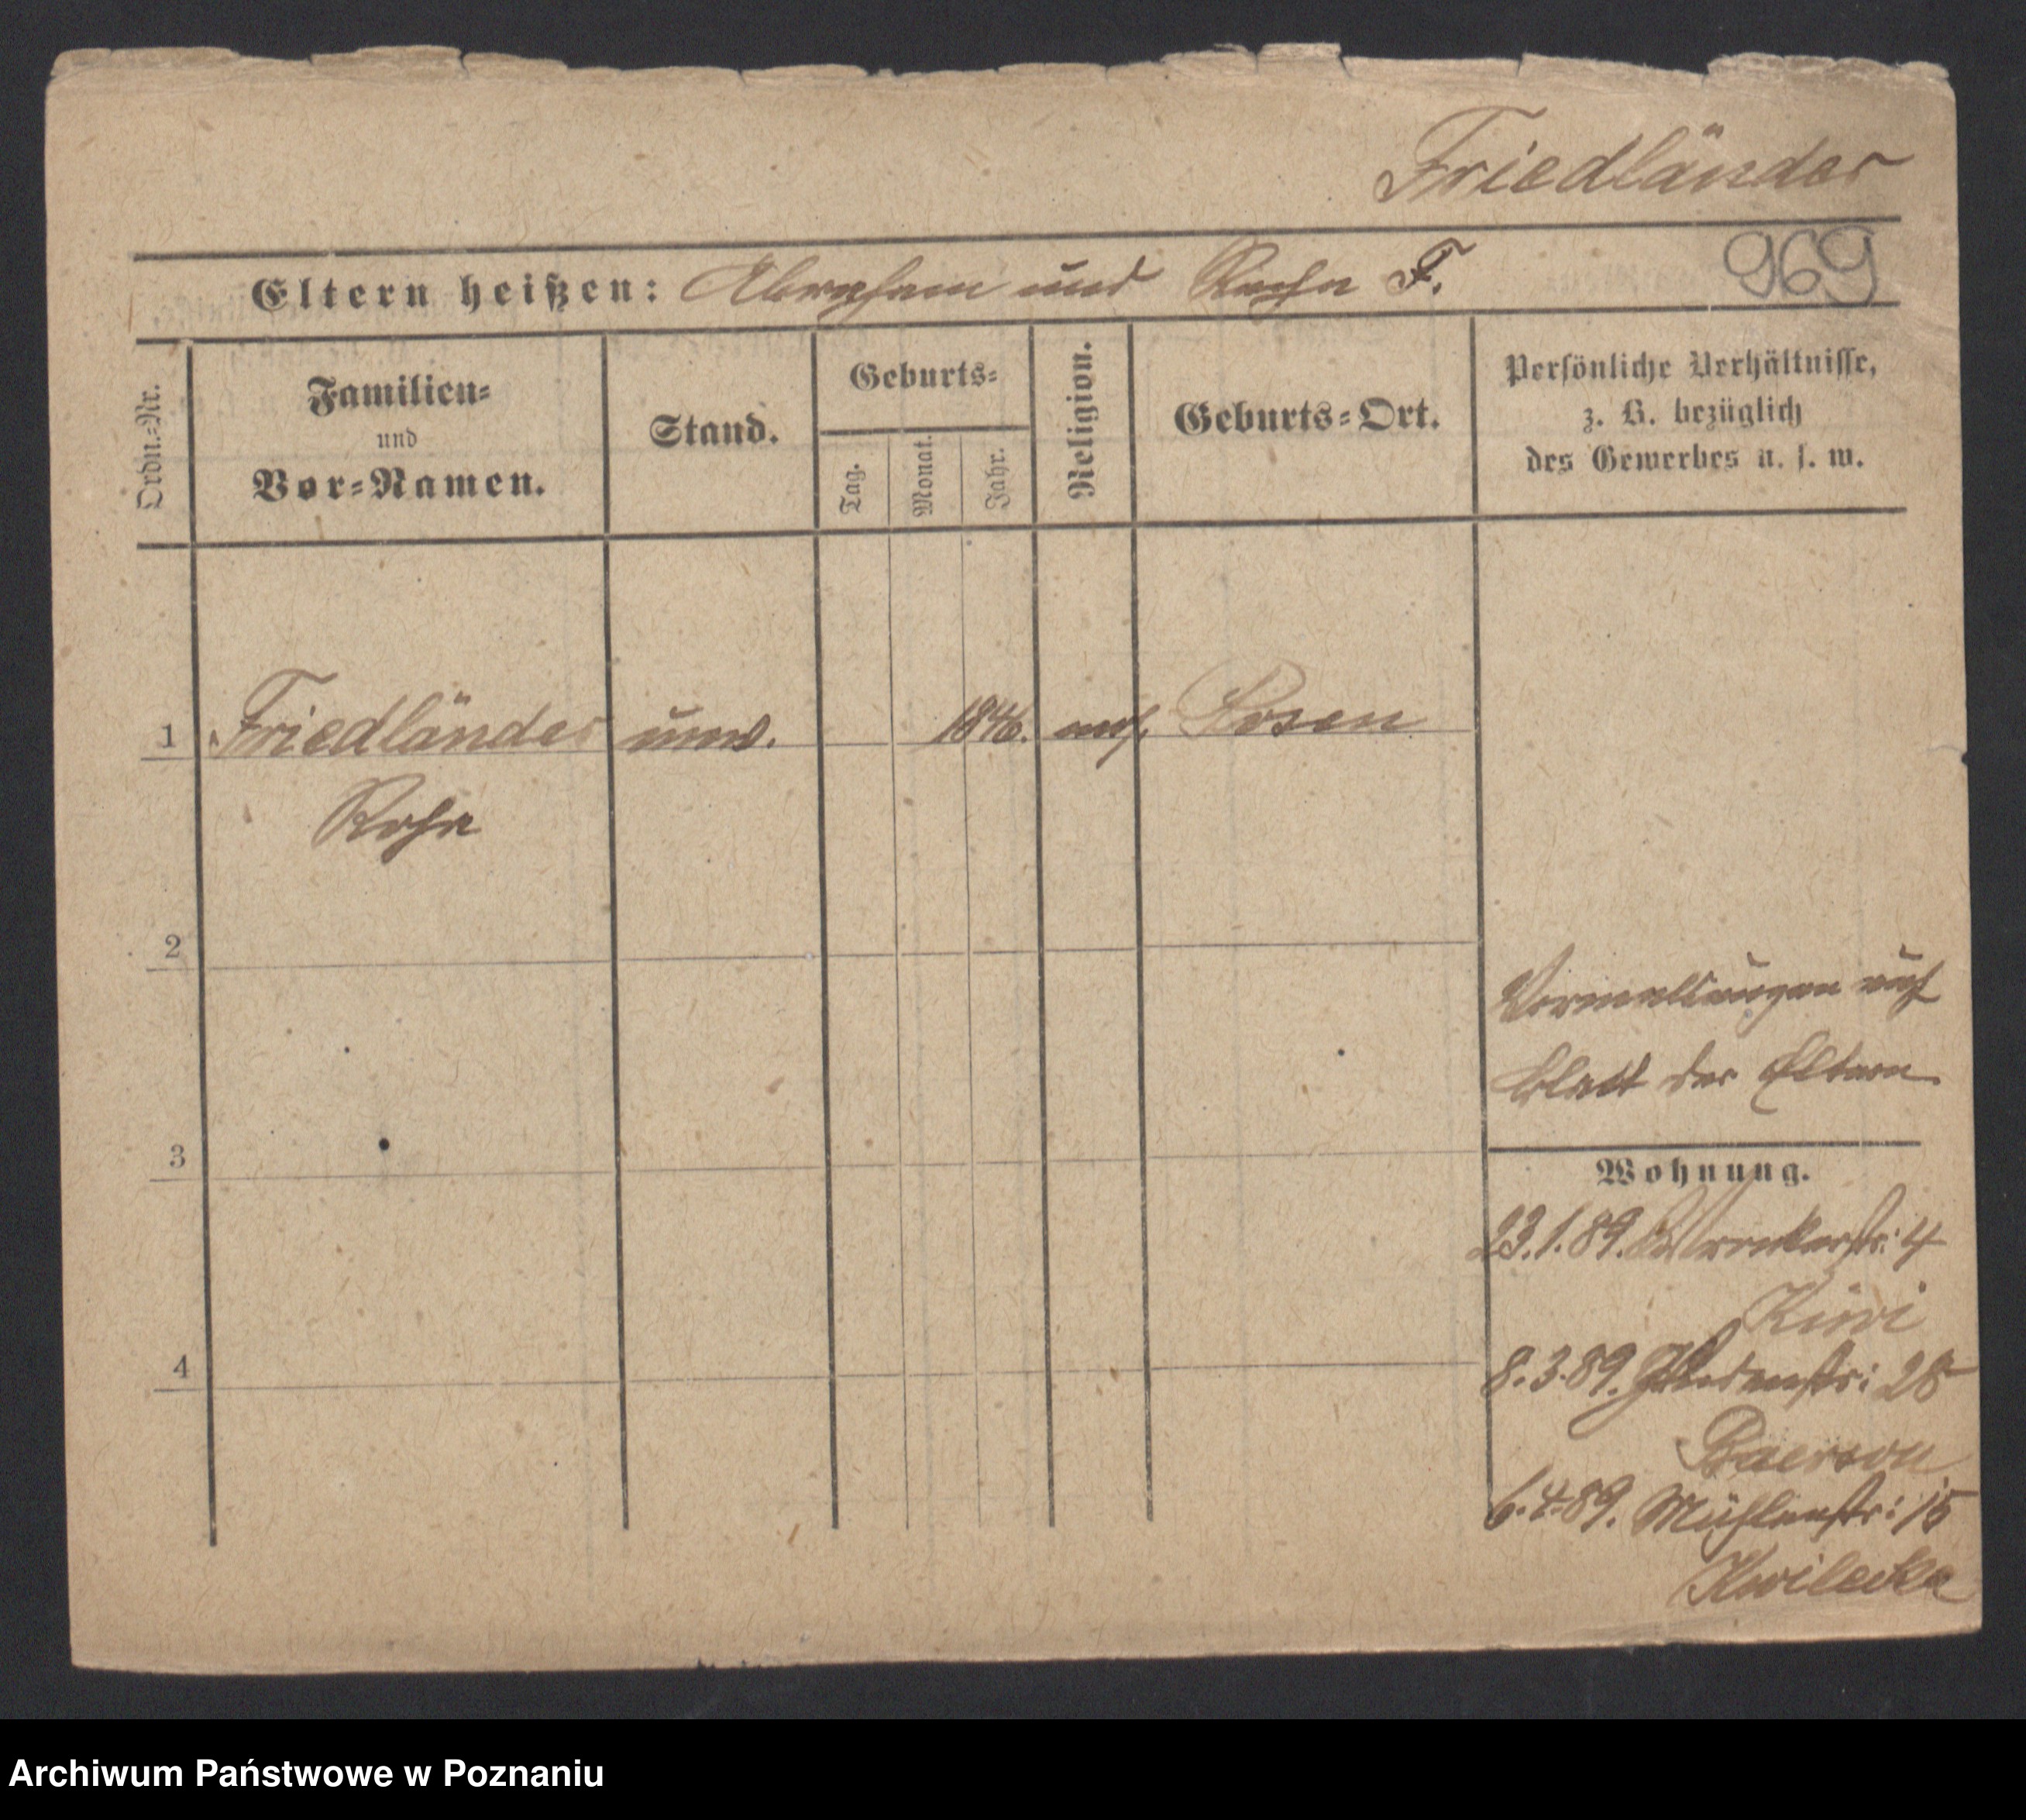 Friedländer
969
Eltern heißen: Abraham und F.
Ordn.-Nr.
Familien-
und
Vor-Namen.
Stand.
Geburts-
Tag.
Monat.
Jahr.
Religion.
Geburts-Ort.
Persönliche Verhältnisse,
z. B. bezüglich
des Gewerbes u. s. w.
1 Friedländer unv. 1846. mos. Posen
Rosa
2
Vermeldungen auf
Blatt der Eltern
3
Wohnung.
23.1.89. Wronkerstr: 4
4
8.3.89. Judenstr: 28
Baerson
6.4.89. Mühlenstr: 15
Kwilecka
Archiwum Państwowe w Poznaniu